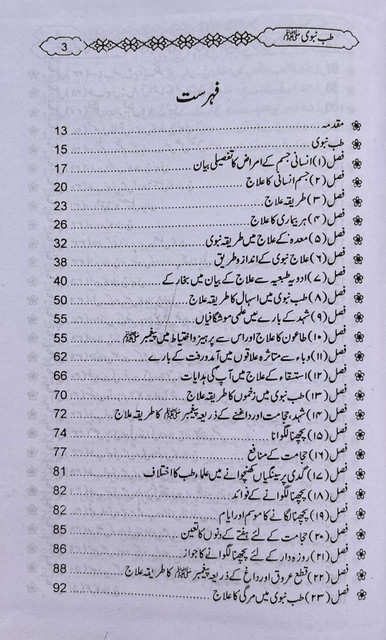 طب نبوی ﷺ 3
فہرست
مقدمہ 13
طب نبوی 15
فصل (۱) انسانی جسم کے امراض کا تفصیلی بیان 17
فصل (۲) جسم انسانی کا علاج 20
فصل (۳) طریقہ علاج 23
فصل (۴) ہر بیماری کا علاج 26
فصل (۵) معدہ کے علاج میں طریقہ نبوی 32
فصل (۶) علاج نبوی کے انداز و طریق 38
فصل (۷) ادویہ طبعیہ سے علاج کے بیان میں بخار کے 40
فصل (۸) طب نبوی میں اسہال کا طریقہ علاج 50
فصل (۹) شہد کے بارے میں علمی موشگافیاں 55
فصل (۱۰) طاعون کا علاج اور اس سے پرہیز و احتیاط میں پیغمبر ﷺ 55
فصل (۱۱) وباء سے متاثرہ علاقوں میں آمد و رفت کے بارے 62
فصل (۱۲) استسقاء کے علاج میں آپ کی ہدایات 66
فصل (۱۳) طب نبوی میں زخموں کا طریقہ علاج 70
فصل (۱۴) شہد، حجامت اور داغنے کے ذریعہ پیغمبر ﷺ کا طریقہ علاج 72
فصل (۱۵) پچھنا لگوانا 74
فصل (۱۶) حجامت کے منافع 77
فصل (۱۷) گدی پر سینگیاں کھنچوانے میں علماء طب کا اختلاف 81
فصل (۱۸) پچھنا لگوانے کے فوائد 82
فصل (۱۹) پچھنا لگانے کا موسم اور ایام 82
فصل (۲۰) حجامت کے لئے ہفتے کے دنوں کا تعین 85
فصل (۲۱) روزہ دار کے لئے پچھنا لگوانے کا جواز 86
فصل (۲۲) قطع عروق اور داغ کے ذریعہ پیغمبر ﷺ کا طریقہ علاج 88
فصل (۲۳) طب نبوی میں مرگی کا علاج 92